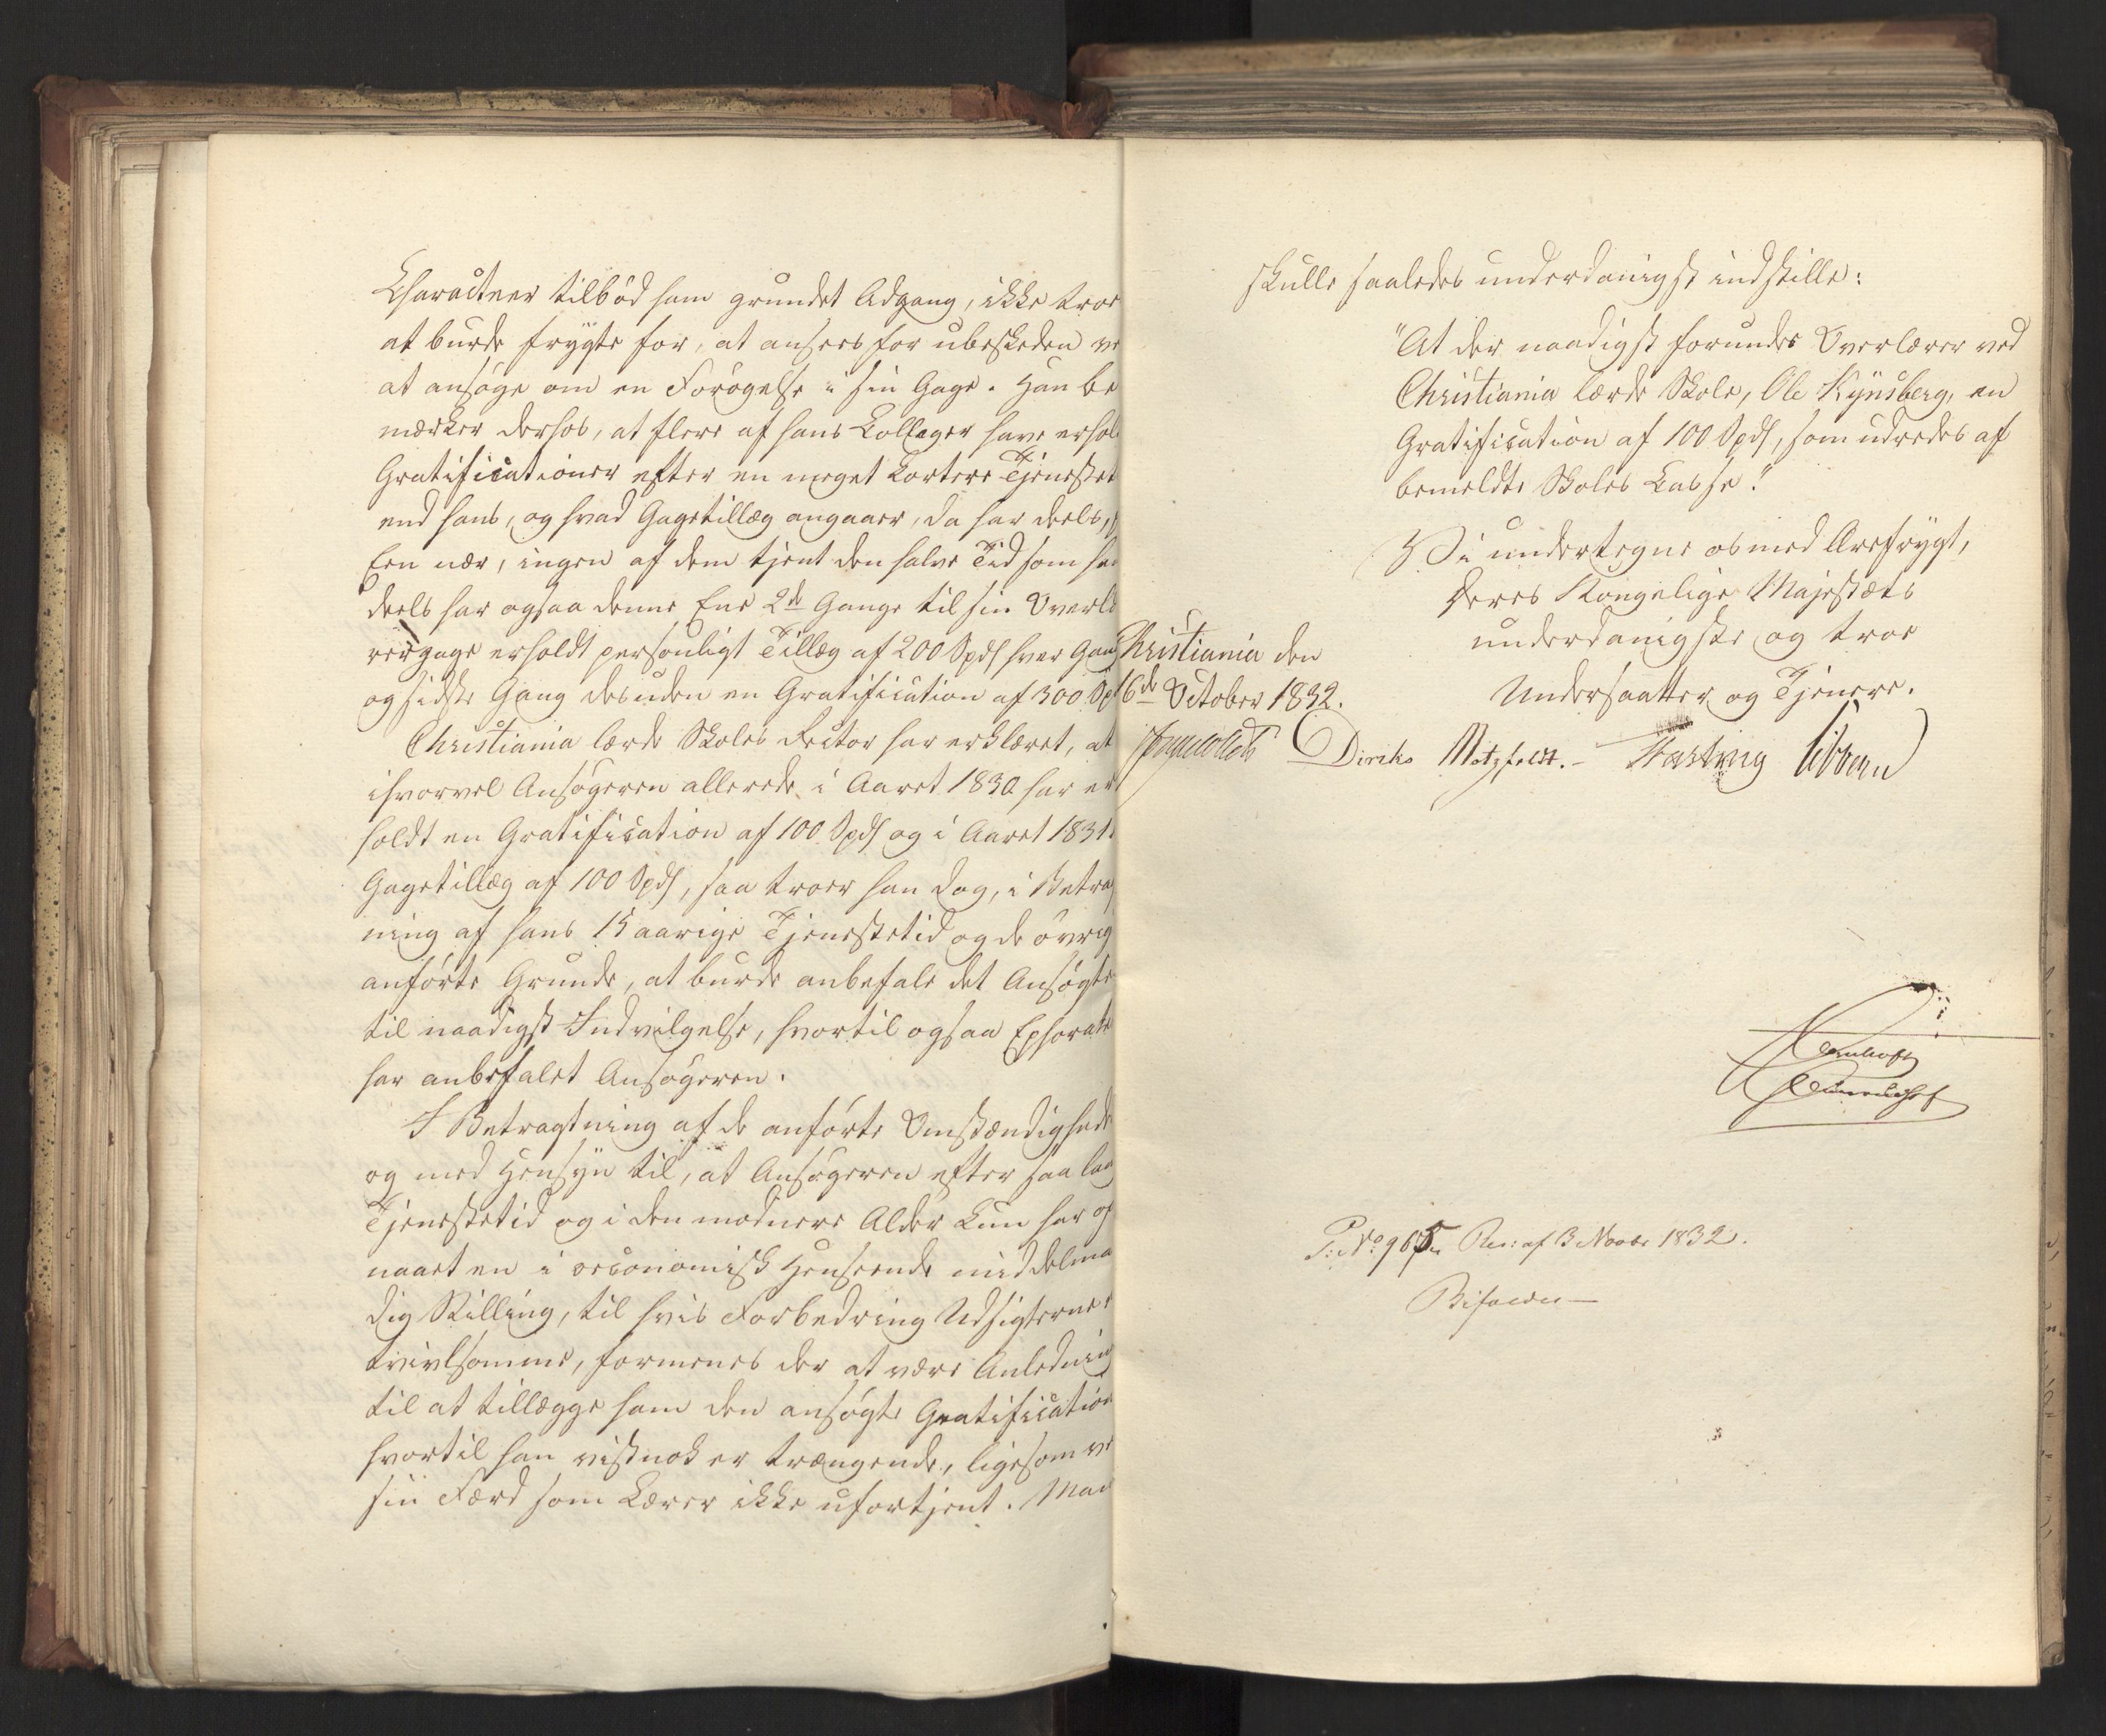 Characteer tilbød ham grundet Adgang, ikke troe
at burde frygte for, at ansees for ubeskeden ve
at ansøge om en Forøgelse i sin Gage. Han be
mærker derhos, at flere af hans Colleger have erhol
Gratificationer efter en meget kortere Tjenestet
end hans, og hvad Gagetillæg angaaer, da har deels,
Een nær, ingen af dem tjent den halve Tid som ha
deels har ogsaa denne Ene 2de Gange til sin Overlæ
rergage erholdt personligt Tillæg af 200 Spdl hver Gang
og sidste Gang desuden en Gratification af 300 Sp
Christiania lærde Skoles Rector har erklæret, at
ihvorvel Ansøgeren allerede i Aaret 1830 har er
holdt en Gratification af 100 Spdl og i Aaret 1831
Gagetillæg af 100 Spdl, saa troer han dog, i Betrag
ning af hans 15 aarige Tjenestetid og de øvrig
anførte Grunde, at burde anbefale det Ansøgte
til naadigst Indvilgelse, hvortil ogsaa Ephorate
har anbefalet Ansøgeren.
I Betragtning af de anførte Omstændighede
og med Hensyn til, at Ansøgeren efter saa lang
Tjenestetid og i den modnere Alder kun har op
naaet en i oeconomisk Henseende middelmaa
dig Stilling, til hvis Forbedring Udsigterne e
tvivlsomme, formenes der at være Anledning
til at tillægge ham den ansøgte Gratification
hvortil han vistnok er trængende, ligesom ve
sin Færd som Lærer ikke ufortjent. Man
skulle saaledes underdanigst indstille:
"At der naadigst forundes Overlærer ved
Christiania lærde Skole, Ole Kynsberg, en
Gratification af 100 Spdl, som udredes af
bemeldte Skoles Casse."
Vi undertegne os med Ærefrygt,
Deres Kongelige Majestæts
underdanigste og troe
Undersaatter og Tjenere.
Christiania den
16de October 1832.
Diriks Motzfeldt. Fasting Sibbern
P: No 965 Res: af 3 Novbr 1832.
Bifaldes